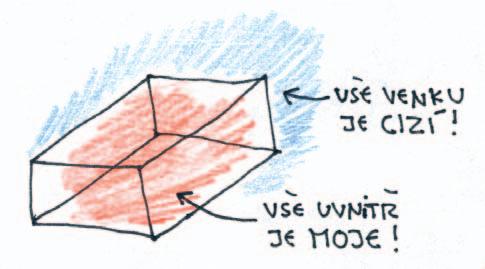 VŠE VENKU
JE CIZÍ!
VŠE UVNITŘ
JE MOJE!